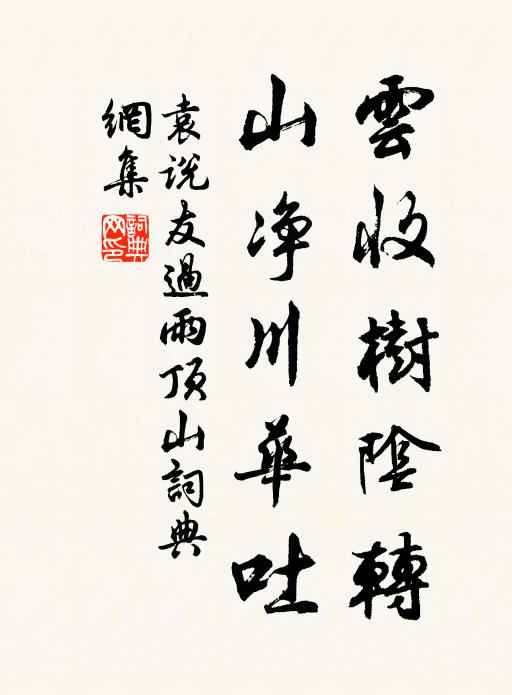 雲收樹陰轉
山净川華吐
袁説友過雨頂山詞典
網集
詞典
网印